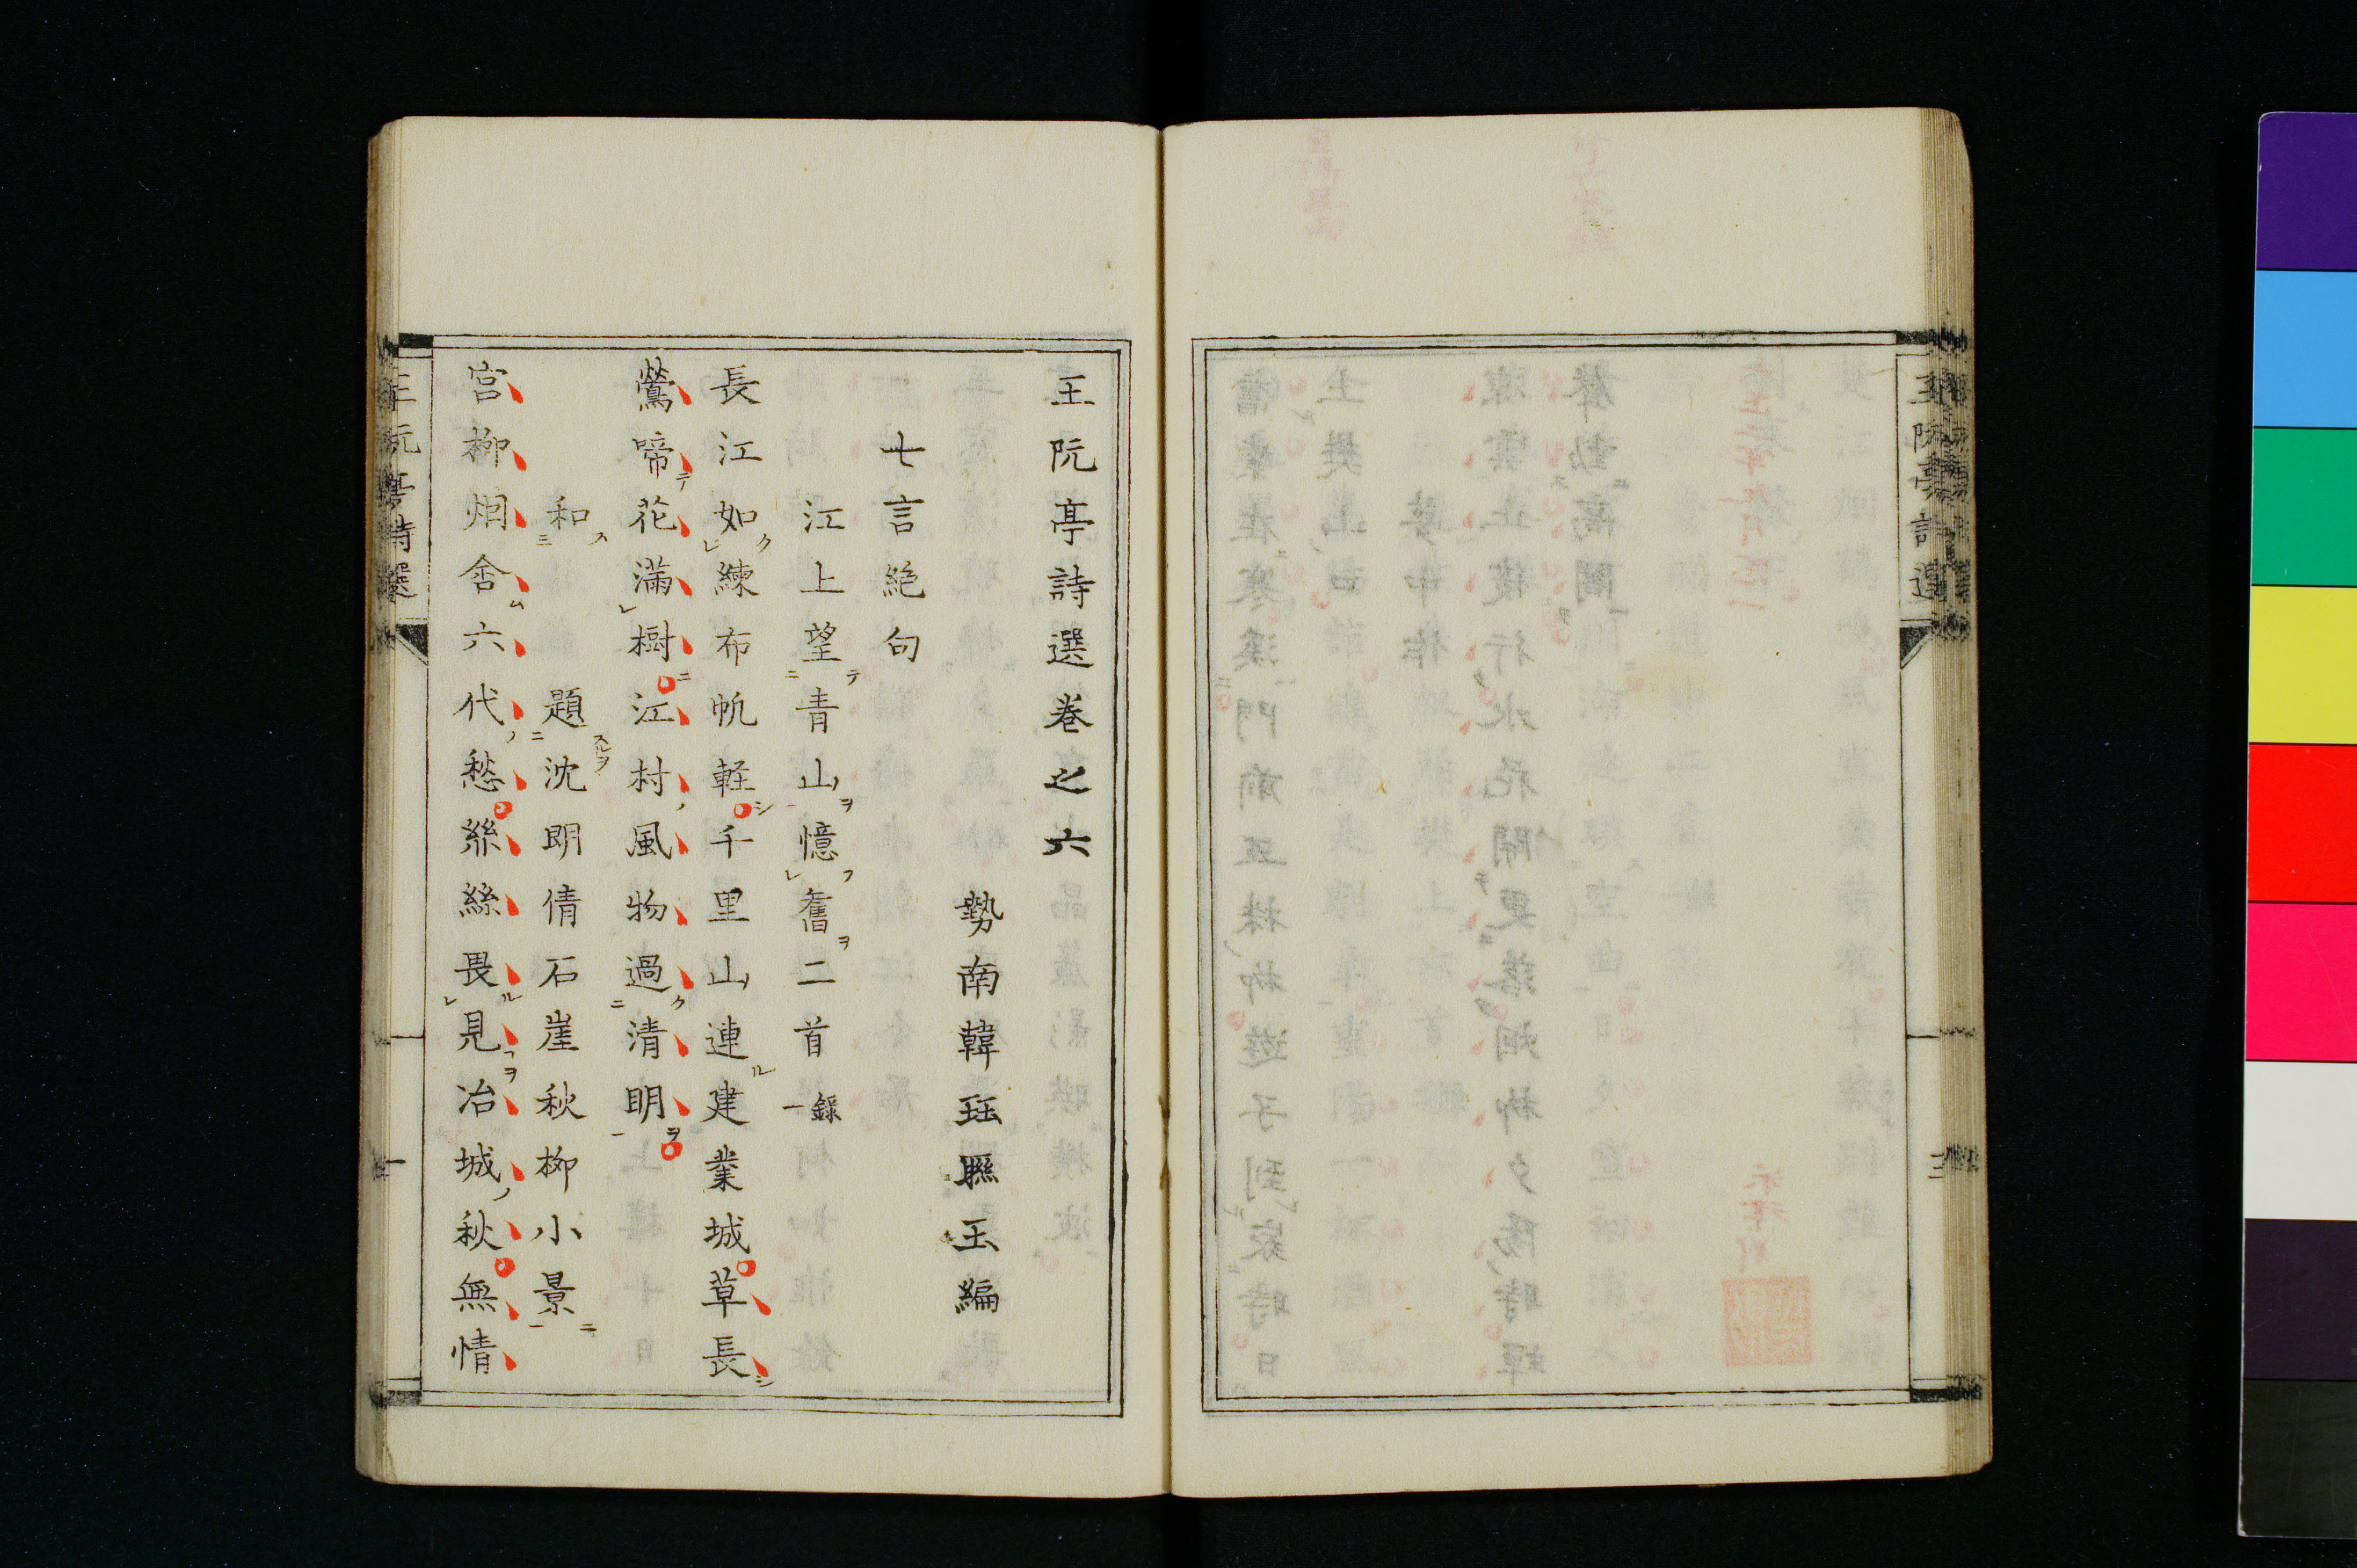 王阮亭詩選
三
王阮亭詩選卷之六
勢南韓珏聯玉編
七言絶句
江上望青山憶舊二首録一
長江如練布帆軽千里山連建業城草長
鶯啼花滿樹江村風物過清明
和題沈朗倩石崖秋柳小景
宮柳烟含六代愁絲絲畏見冶城秋無情
王阮亭詩選
一